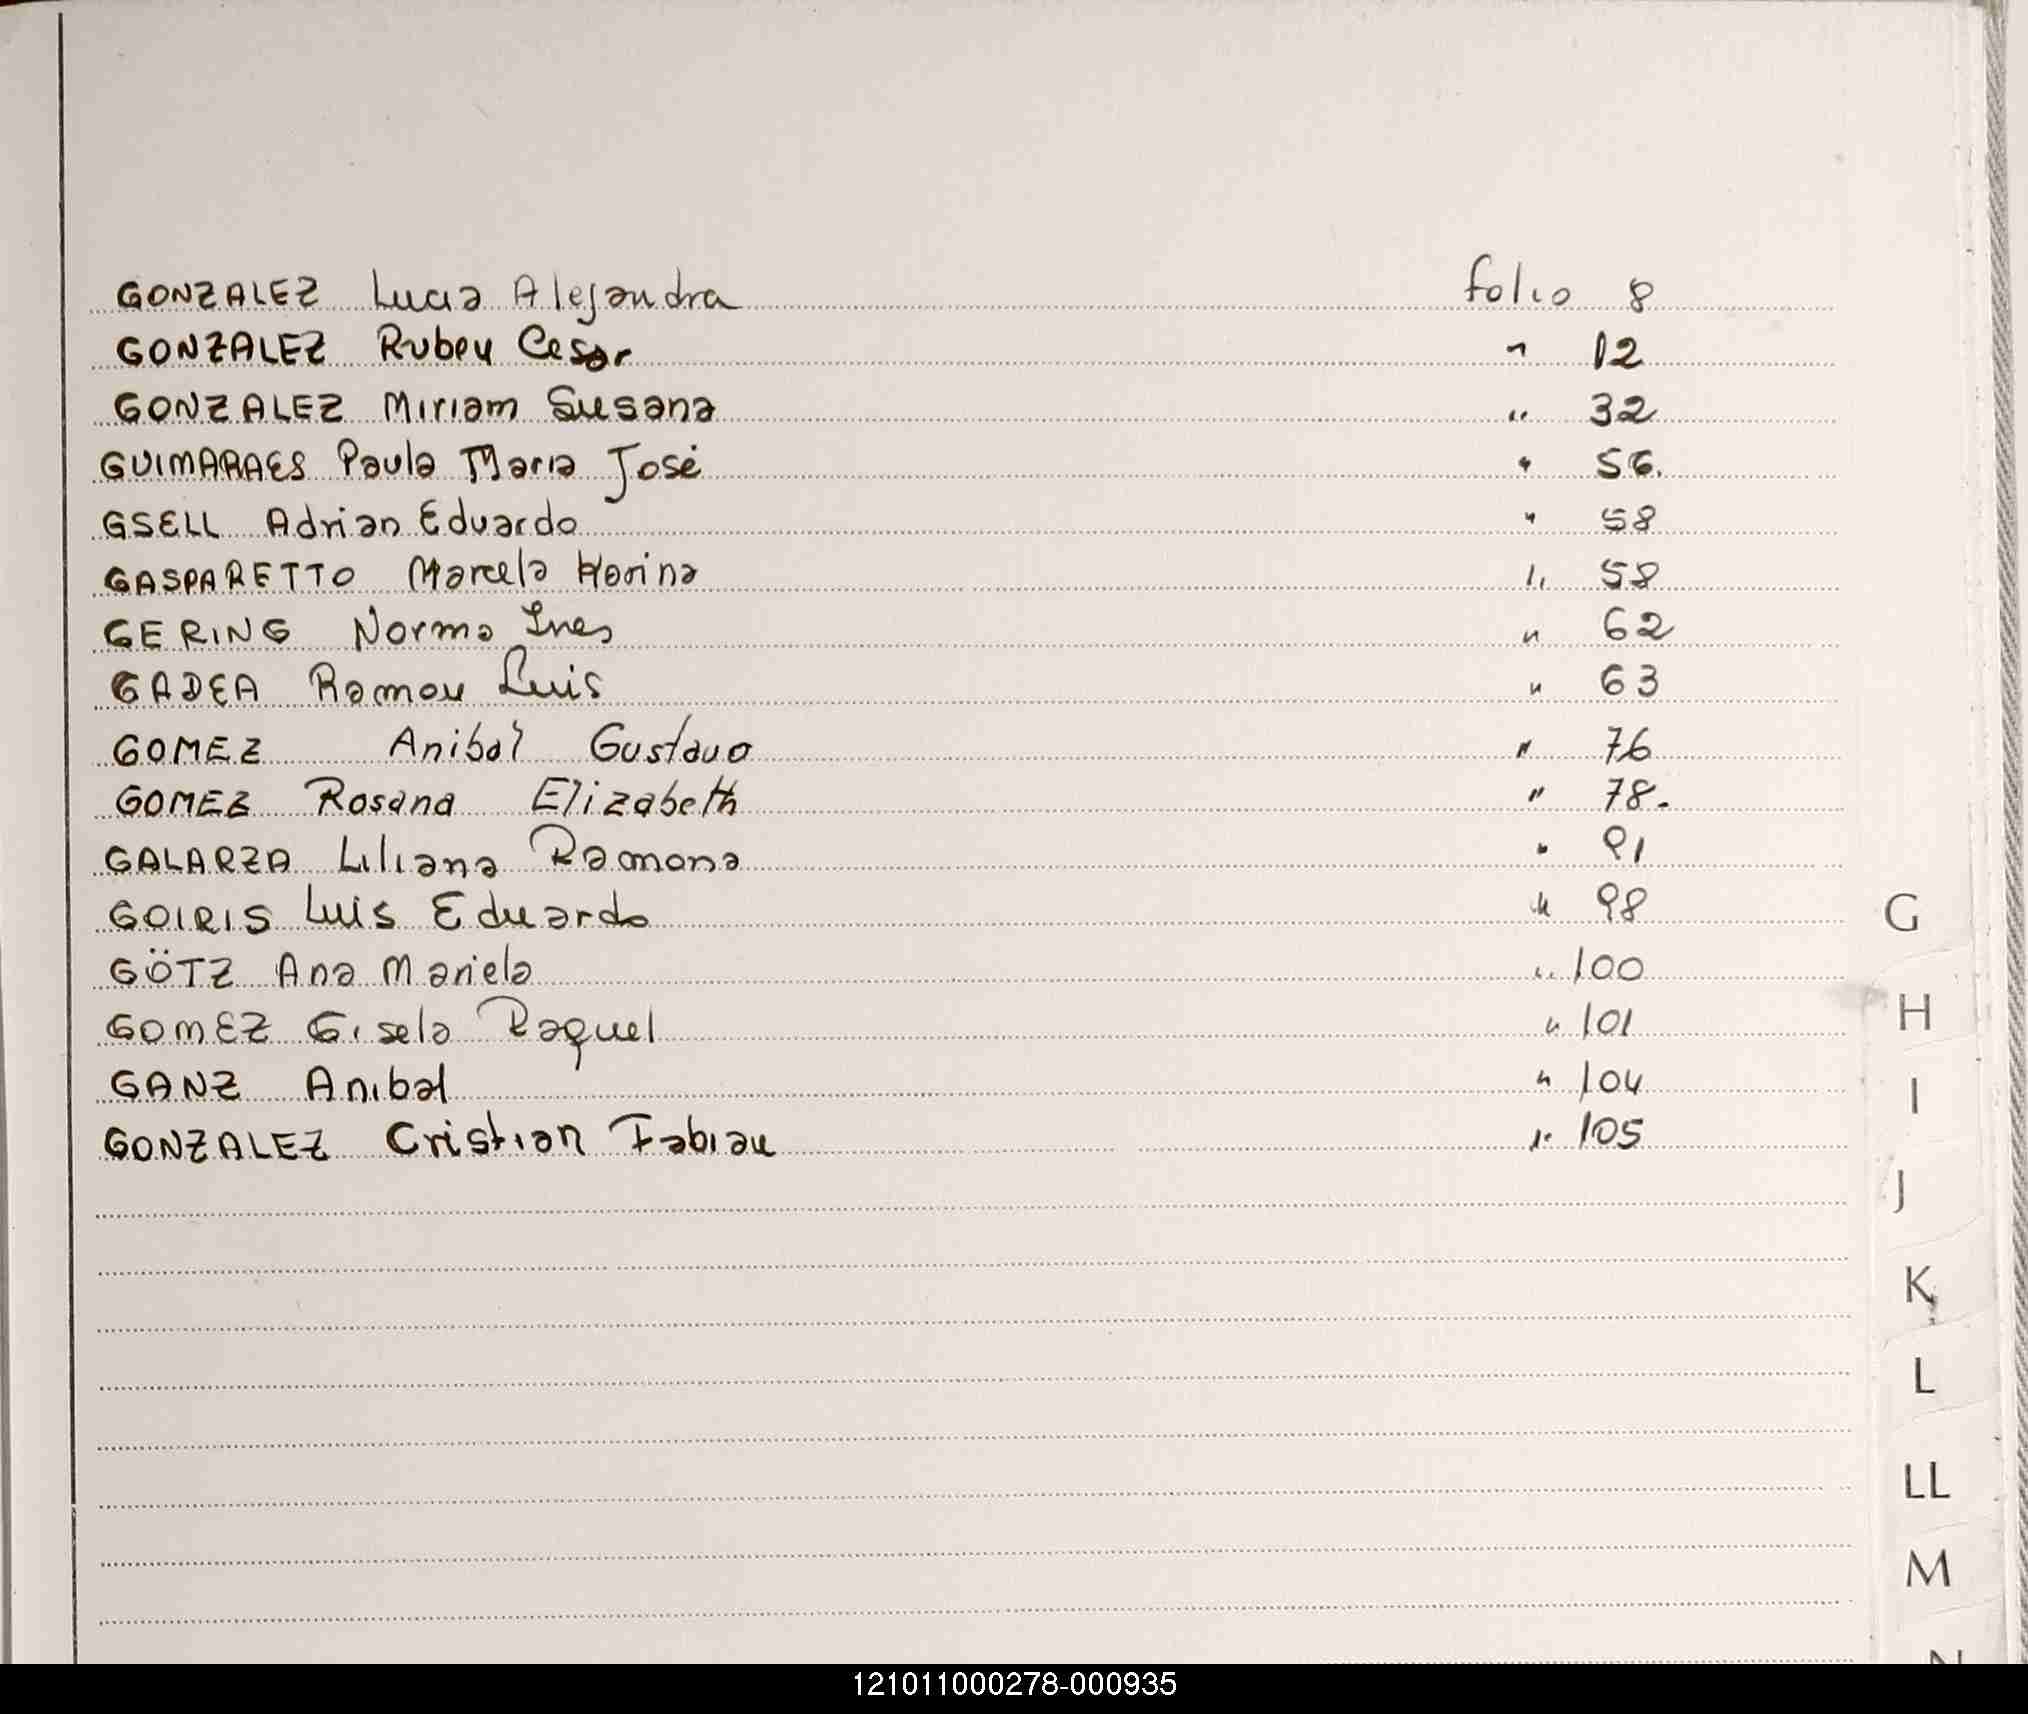 GONZALEZ Lucia Alejandra folio 8
GONZALEZ Ruben Cesar " 12
GONZALEZ Miriam Susana " 32
GUIMARAES Paula Maria José " 56.
GSELL Adrian Eduardo " 58
GASPARETTO Marcela Horina " 58
GERING Norma Ines " 62
GADEA Ramon Luis " 63
GOMEZ Anibal Gustavo " 76
GOMEZ Rosana Elizabeth " 78.
GALARZA Liliana Ramona " 91
GOIRIS Luis Eduardo " 98
GÖTZ Ana Mariela " 100
GOMEZ Gisela Raquel " 101
GANZ Anibal " 104
GONZALEZ Cristian Fabian " 105
G
H
I
J
K
L
LL
M
N
121011000278-000935